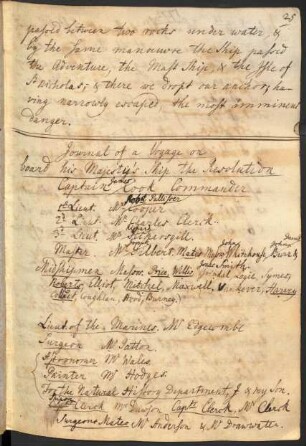 25
passed between two rocks under water, &
by the same manœuvre the Ship passed
the Adventure, the Mast Ship, & the Isle of
St Nicholas; & there we dropt our anchor, ha-
ving narrowly escaped the most imminent
danger.
Journal of a Voyage on
board his Majesty's Ship the Resolution
Captain James Cook Commander
1st Lieut. Robt Pallisser Cooper
2d Lieut. Mr Charles Clerk
3d Lieut. Mr Pickersgill
Master Mr Gilbert, Mates John Whitehouse, Burr
Smith
Midshipmen Messrs Price, Willis
Roberts, Eliot, Mitchel, Maxwell, Vancover, Harvey
Loughlan, Hood, Burney)
Lieut. of the Marines. Mr Edgecombe
Surgeon Mr Patton
Astronomer Mr Wales
Painter Mr Hodges.
For the Natural History Department, I & my Son.
Clerk Mr Dawson Captns Clerk, Mr Clerk
Surgeons Mates Mr Anderson & Mr Drawwater